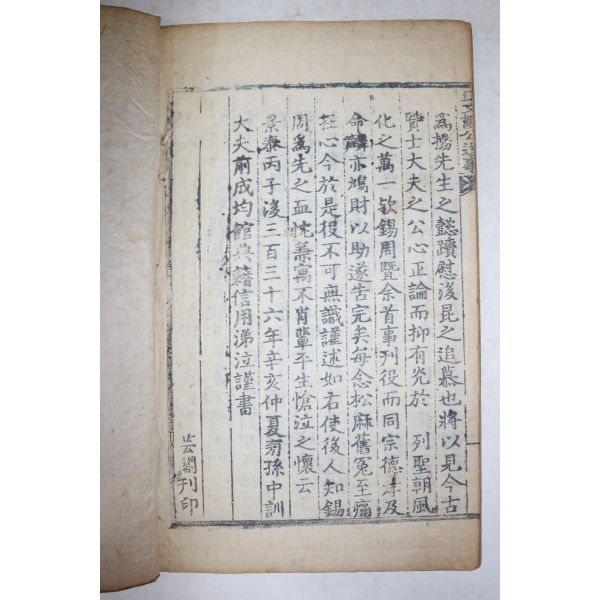 爲揚先生之懿蹟慰後昆之追慕也將以見今古
賢士大夫之公心正論而抑有光於 列聖朝風
化之萬一欤錫周曁余首事刊役而同宗德彦及
命麟亦鳩財以助遂告完矣每念松麻舊冤至痛
在心今於是役不可無識謹述如右使後人知錫
周爲先之血忱兼寓不肖輩平生愴泣之懷云
景泰丙子後三百三十六年辛亥仲夏旁孫中訓
大夫前成均館典籍信用涕泣謹書
芸閣刊印